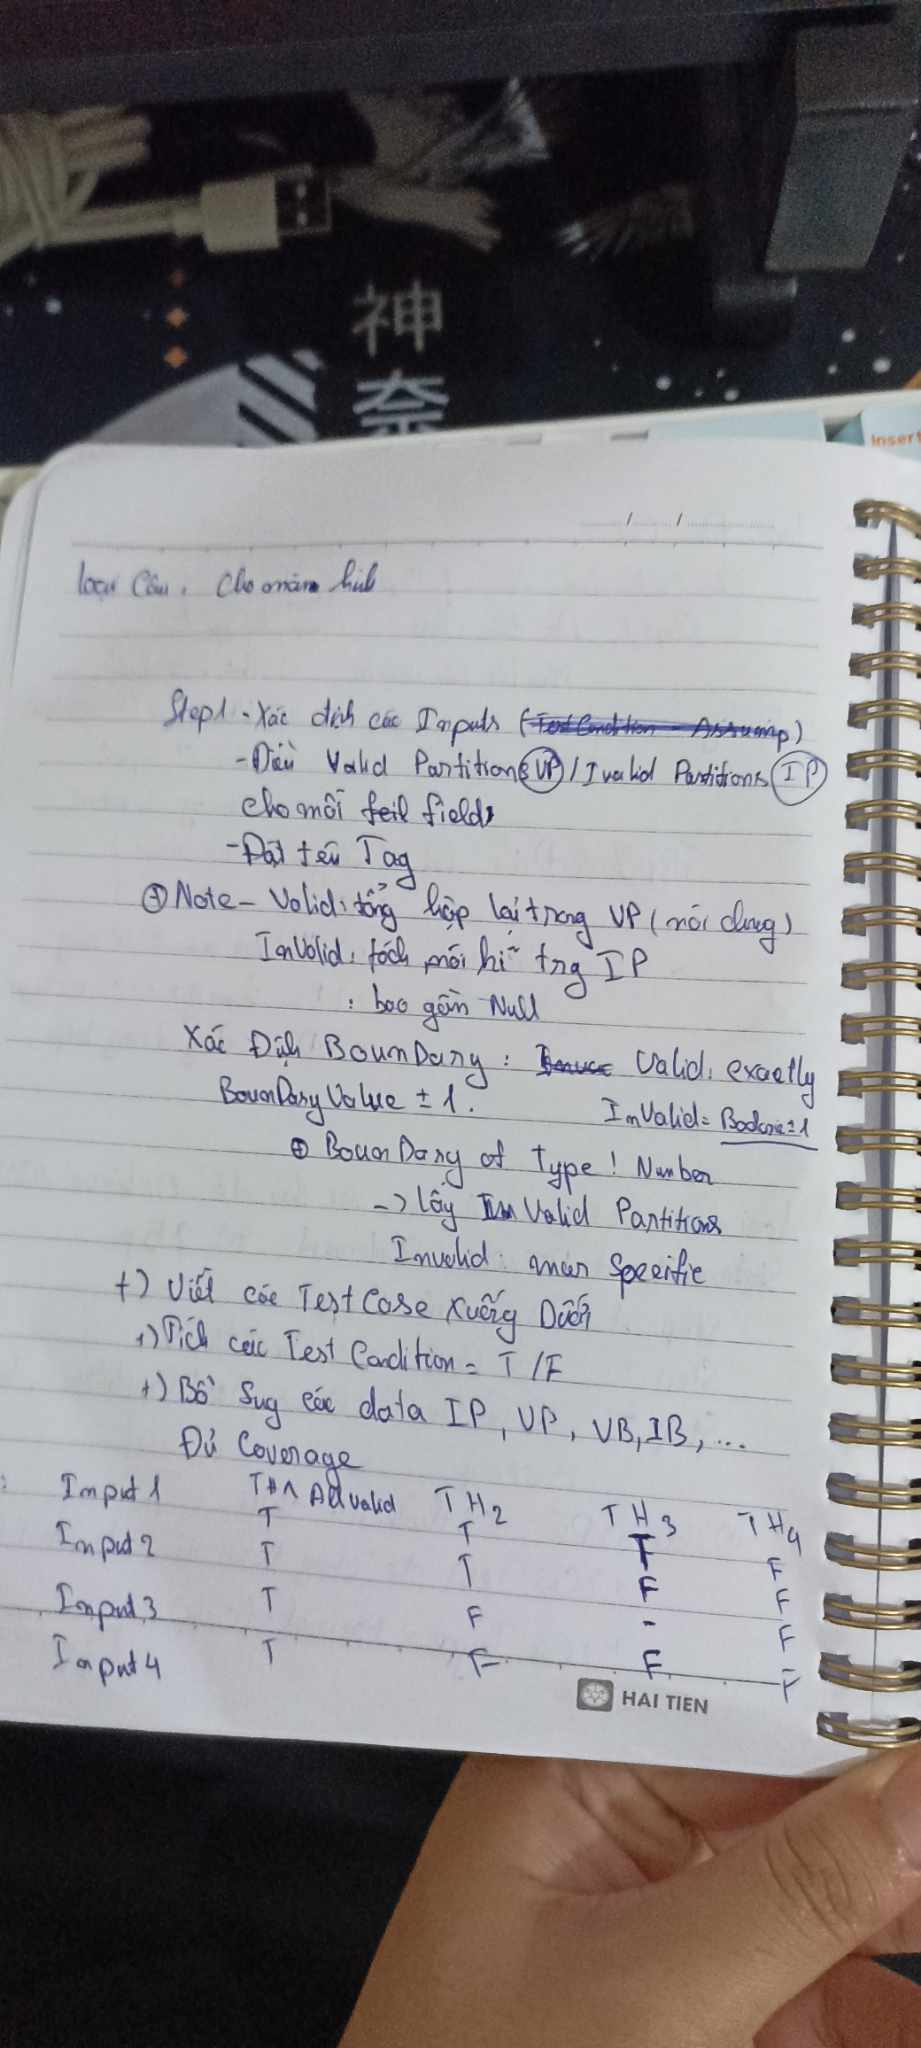 神
奈
Insert
/ /
loại Câu. Cho màn hình
Step1 - Xác định các Inputs (Test Condition - Assump)
- Điền Valid Partitions (VP) / Ivalid Partitions (IP)
cho mỗi feil fields
- Đặt tên Tag
+ Note - Valid: tổng hợp lại trong VP (nói chung)
InValid: tách mỗi hi trg IP
: bao gồm Null
Xác Định BounDary: Valid: exactly
BounDary Value ± 1. InValid = ±1
+ BounDary of Type! Number
-> lấy Valid Partitions
Invalid: Specific
+) Viết các TestCase Xuống Dưới
+) Tích các Test Condition = T/F
+) Bổ Sug các data IP, VP, VB, IB, ...
Đủ Coverage
: Input1 TH1 All valid TH2 TH3 TH4
T T T F
Input2 T T F F
Input3 T F - F
Input4 T F F F
HAI TIEN